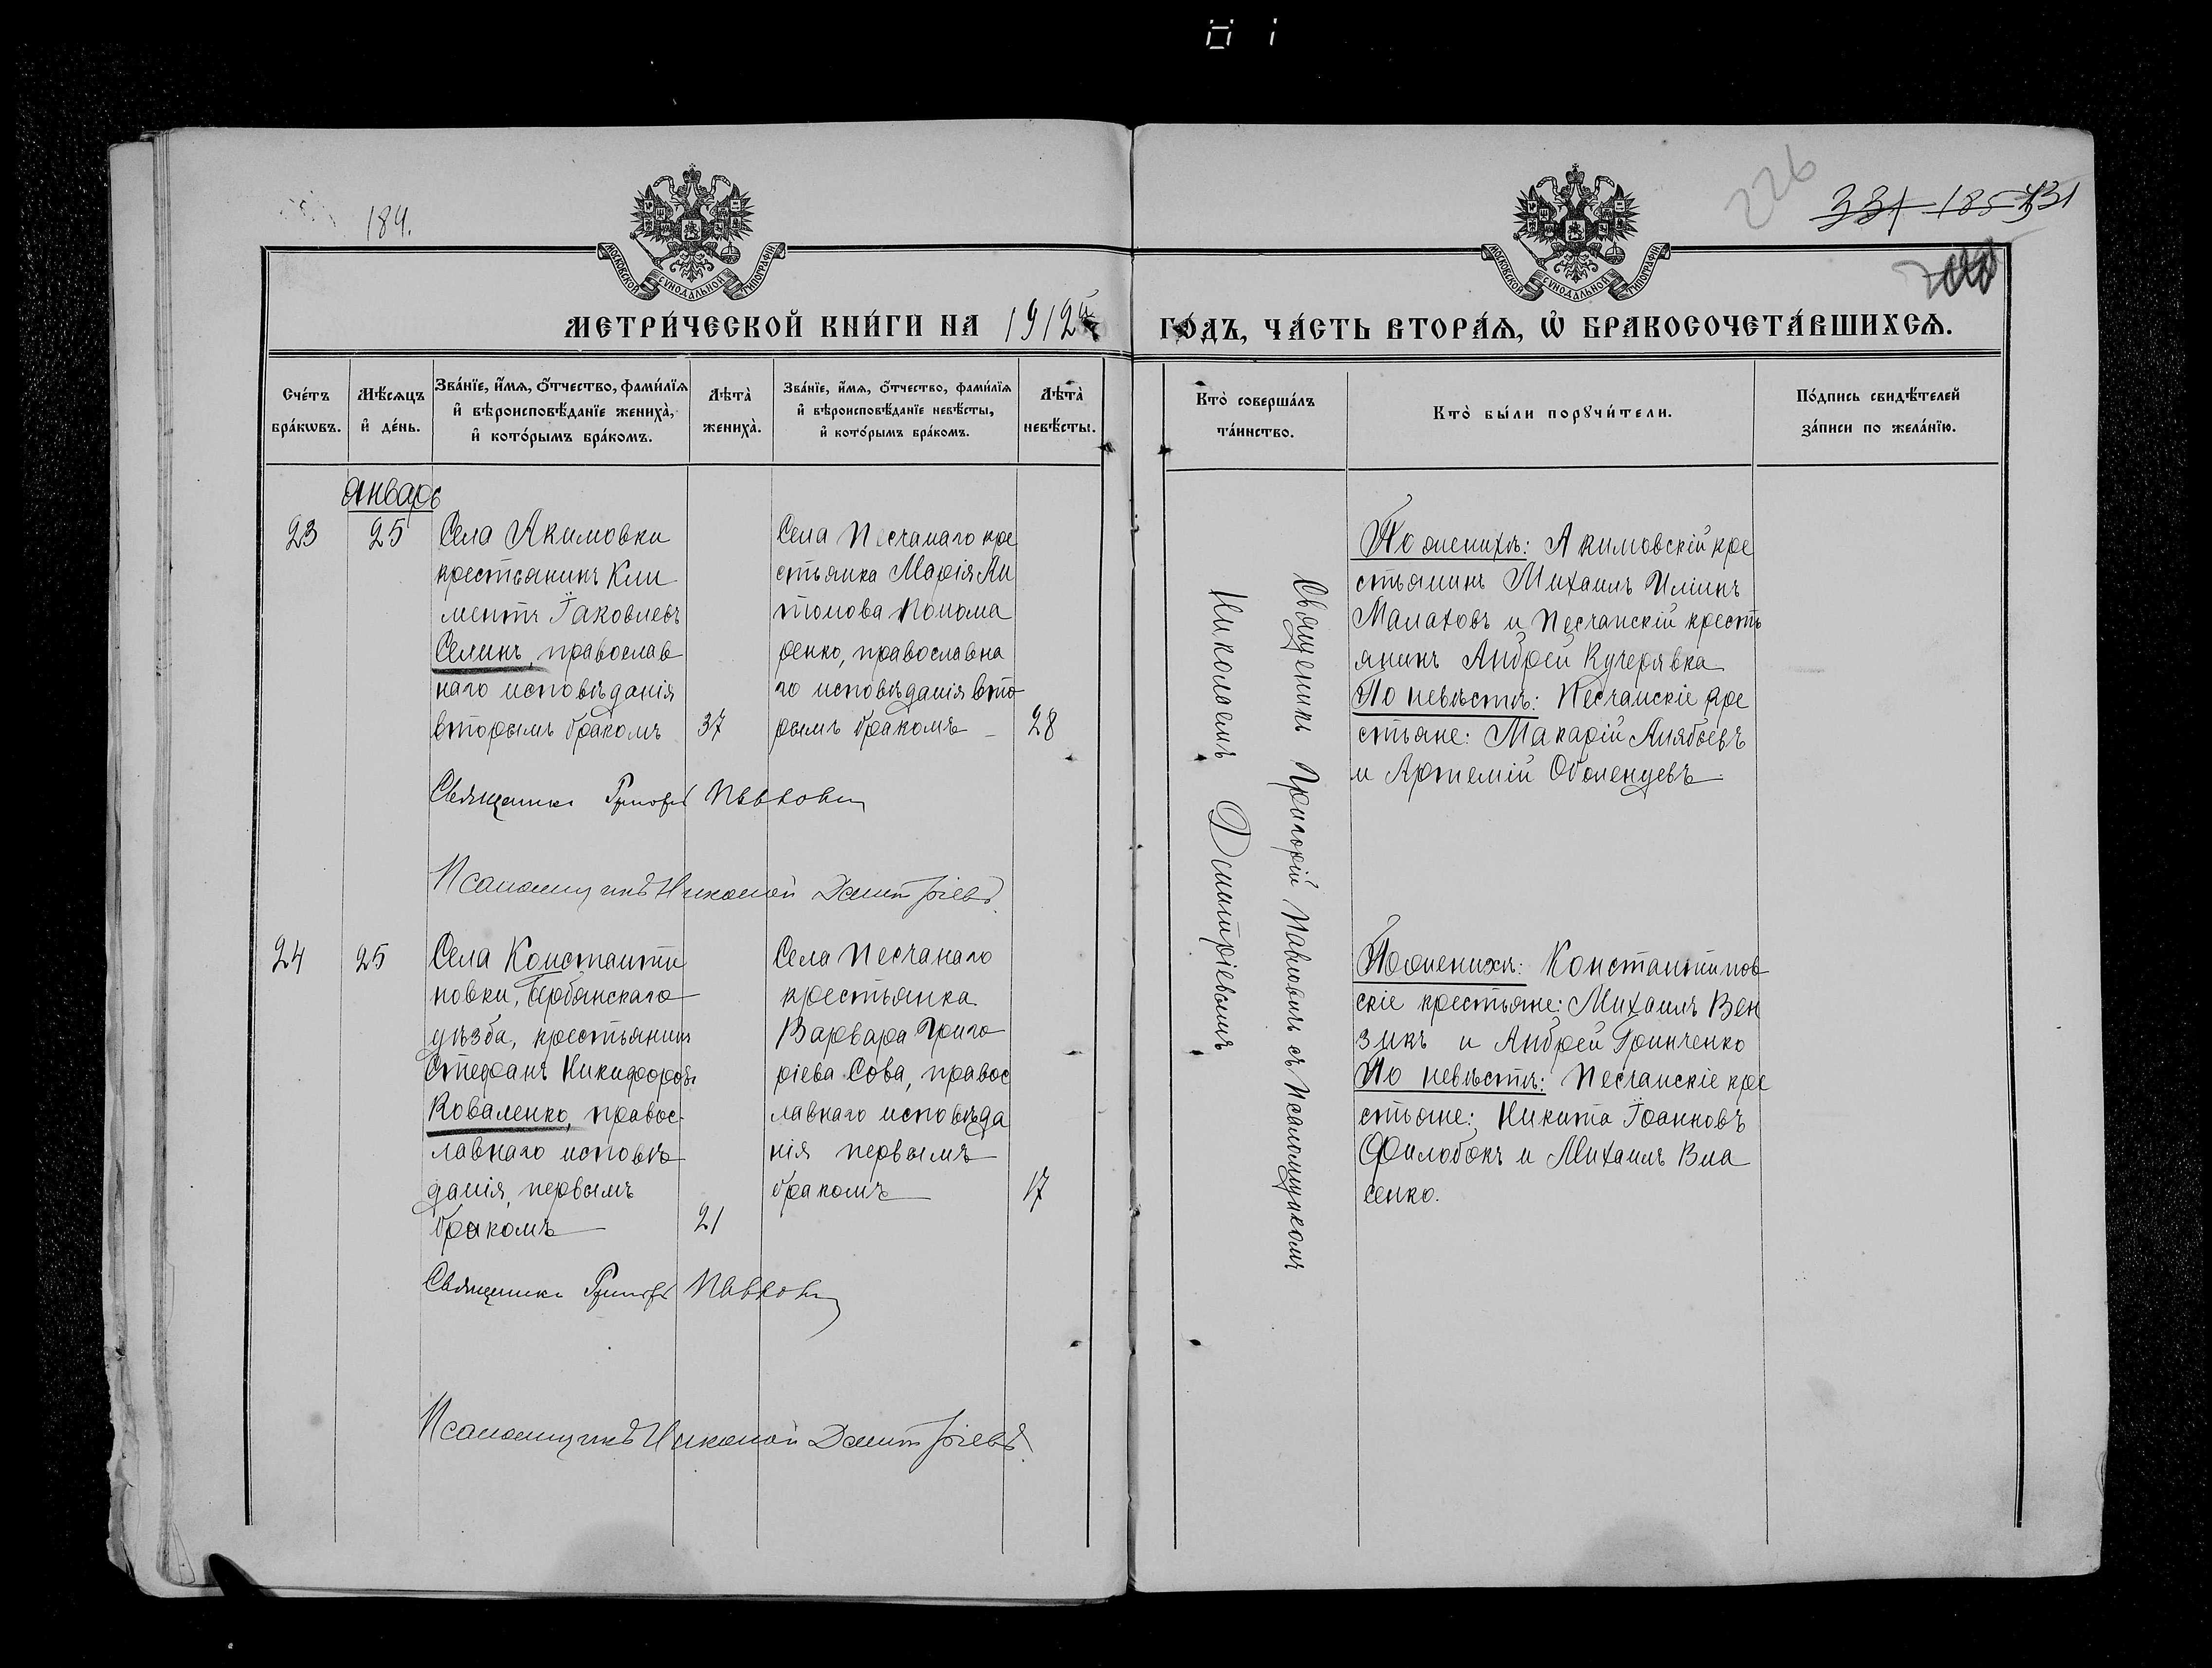 184.
226
331 185 331
МОСКОВСКОЙ СѴНОДАЛЬНОЙ ТИПОГРАФІИ
МОСКОВСКОЙ СѴНОДАЛЬНОЙ ТИПОГРАФІИ
МЕТРИ́ЧЕСКОЙ КНИ́ГИ НА 1912й ГО́ДЪ, ЧА́СТЬ ВТОРА́Ѧ, Ѽ БРАКОСОЧЕТА́ВШИХСѦ.
Сче́тъ
бра́кѡвъ.
Мѣ́сѧцъ
и҆ де́нь.
Зва́нїе, и҆́мѧ, ѻ҆́тчество, фами́лїѧ
и҆ вѣроисповѣ́данїе жениха̀,
и҆ кото́рымъ бра́комъ.
Лѣта̀
жениха̀.
Зва́нїе, и҆́мѧ, ѻ҆́тчество, фами́лїѧ
и҆ вѣроисповѣ́данїе невѣ́сты,
и҆ кото́рымъ бра́комъ.
Лѣта̀
невѣ́сты.
Кто̀ соверша́лъ
та́инство.
Кто̀ бы́ли порꙋчи́тели.
По́дпись свидѣ́телей
за́писи по жела́нїю.
Январь
23
25
Села Акимовки
крестьянинъ Кли
ментъ Іаковлевъ
Селинъ, православ
наго исповѣданія
вторымъ бракомъ
37
Села Песчанаго кре
стьянка Марія Ан
тонова Понома
ренко, православна
го исповѣданія вто
рымъ бракомъ
28
Священникъ Григорій Павловъ с Псаломщикомъ
Николаемъ Дмитріевымъ
По женихѣ: Акимовскій кре
стьянинъ Михаилъ Илiинъ
Малаховъ и Песчанскій кресть
янинъ Андрей Кучерявка
По невѣстѣ: Песчанскіе кре
стьяне: Макарій Алябьевъ
и Артемій Оболенцевъ.
Священникъ Григорій Павловъ
Псаломщикъ Николай Дмитріевъ.
24
25
Села Константи
новки, Бердянскаго
уѣзда, крестьянинъ
Стефанъ Никифоровъ
Коваленко, правос-
лавнаго исповѣ
данія, первымъ
бракомъ
21
Села Песчанаго
крестьянка
Варвара Григо
ріева Сова, правос
лавнаго исповѣда
нія первымъ
бракомъ
17
По женихѣ: Константинов
скіе крестьяне: Михаилъ Вен
зикъ и Андрей Гринченко
По невѣстѣ: Песчанскіе кре
стьяне: Никита Іоанновъ
Филобокъ и Михаилъ Вла
сенко.
Священникъ Григорій Павловъ
Псаломщикъ Николай Дмитріевъ.